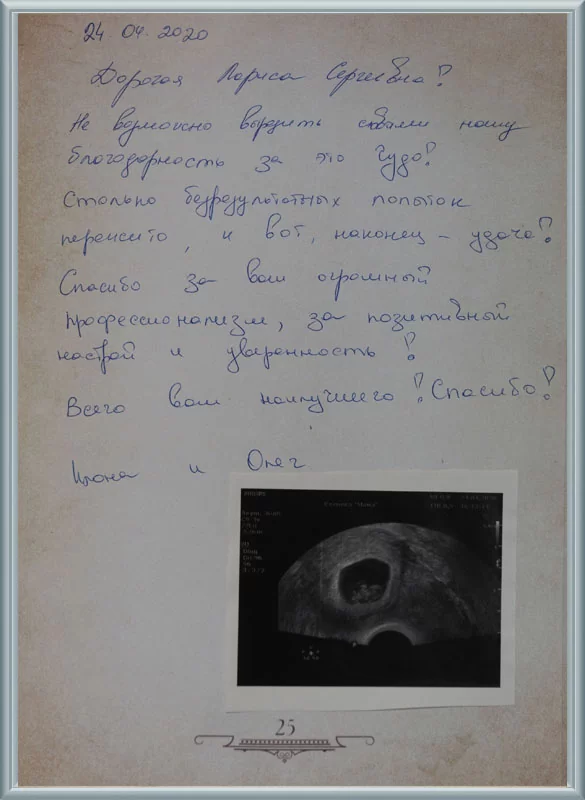 24.04.2020
Дорогая Лариса Сергеевна!
Не возможно выразить словами нашу
благодарность за это Чудо!
Столько безрезультатных попыток
пережито, и вот, наконец - удача!
Спасибо за ваш огромный
профессионализм, за позитивный
настрой и уверенность!
Всего вам наилучшего! Спасибо!
Илона и Олег
PHILIPS
25